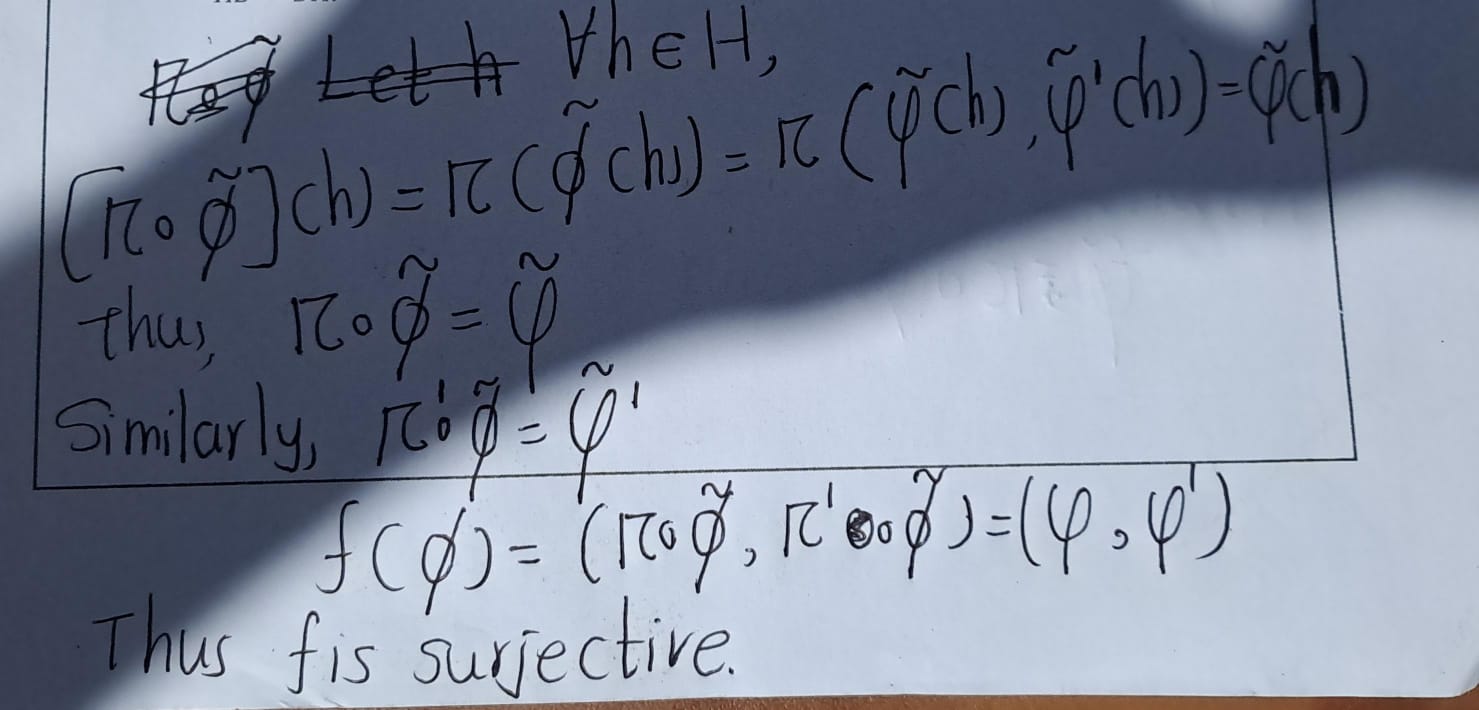 ∀h∈H,
[π∘φ̃](h) = π(φ̃(h)) = π(ψ̃(h), ψ̃'(h)) = ψ̃(h)
thus, π∘φ̃ = ψ̃
Similarly, π'∘φ̃ = ψ̃'
f(φ) = (π∘φ̃, π'∘φ̃) = (ψ, ψ')
Thus f is surjective.